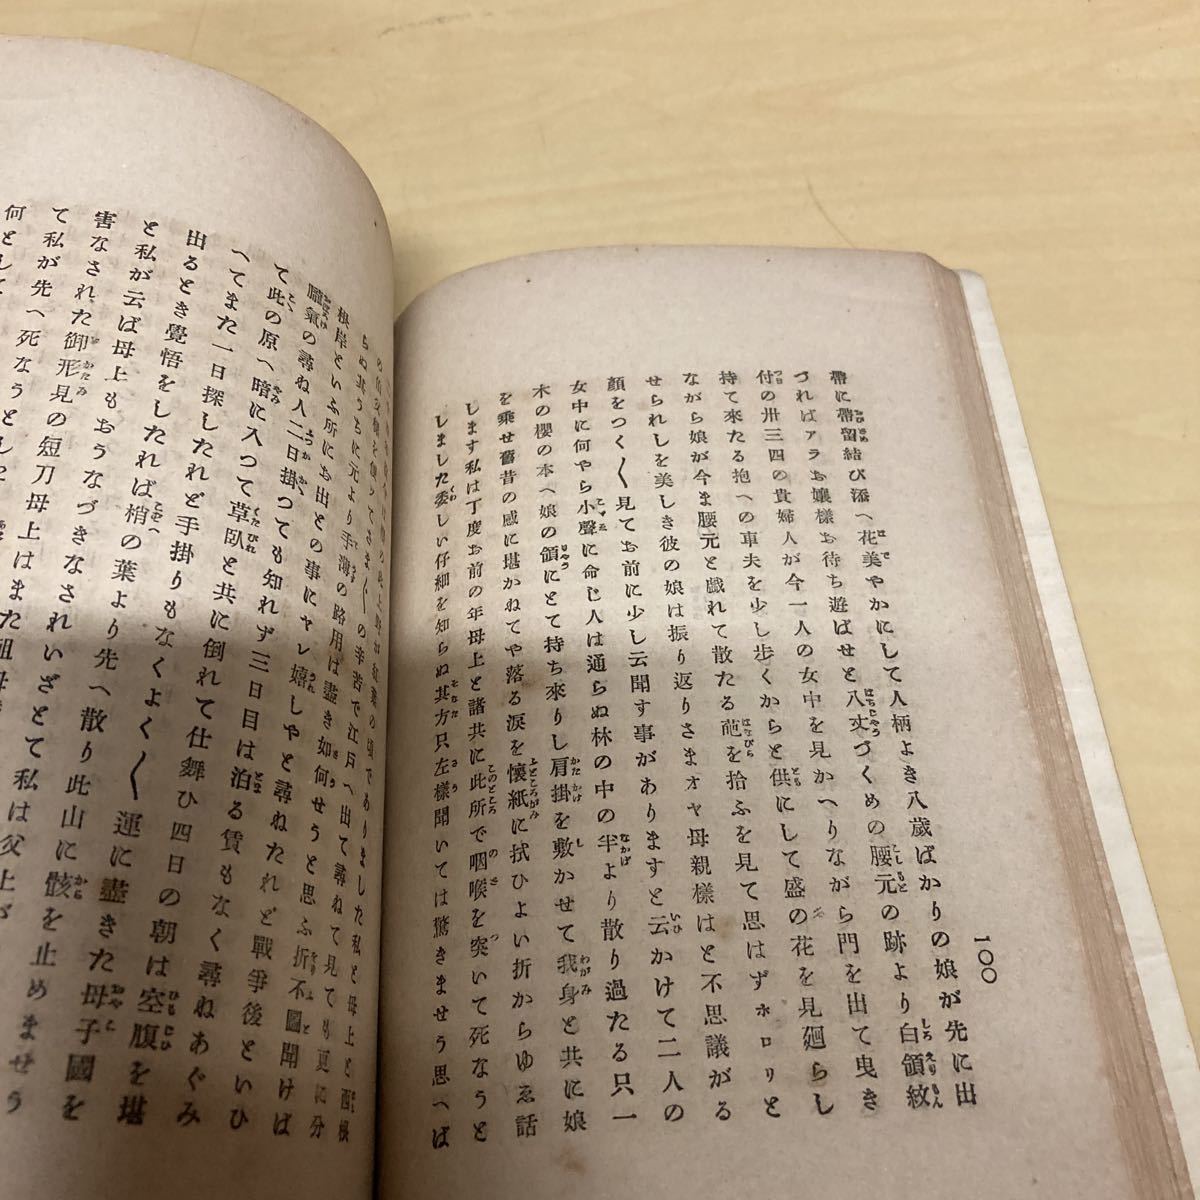 一〇〇
帶に帶留結び添へ花美やかにして人柄よき八歳ばかりの娘が先に出
づればアラお孃樣お待ち遊ばせと八丈づくめの腰元の跡より白領紋
付の卅三四の貴婦人が今一人の女中を見かへりながら門を出て曳き
持て來たる抱への車夫を少し歩くからと供にして盛の花を見廻らし
ながら娘が今ま腰元と戯れて散たる葩を拾ふを見て思はずホロリと
せられしを美しき彼の娘は振り返りさまオヤ母親樣はと不思議がる
顏をつく〴〵見てお前に少し云聞す事がありますと云かけて二人の
女中に何やら小聲に命じ人は通らぬ林の中の半より散り過たる只一
木の櫻の本へ娘の領にとて持ち來りし肩掛を敷かせて我身と共に娘
を乘せ舊昔の感に堪かねてや落る涙を懷紙に拭ひよい折からゆゑ話
します私は丁度お前の年母上と諸共に此所で咽喉を突いて死なうと
しました委しい仔細を知らぬ其方只左樣聞いては驚きませう思へば
上野が紅葉の頃でありました私と母上と西根
らぬ其うちに元より手薄の路用は盡き如何せうと思ふ折不圖聞けば
根岸といふ所にお出との事にヤレ嬉しやと尋ねたれど戰爭後といひ
朧氣の尋ね人二日掛つても知れず三日目は泊る賃もなく尋ねあぐみ
て此の原へ暗に入つて草臥と共に倒れて仕舞ひ四日の朝は空腹を堪
へてまた一日探したれど手掛りもなくよく〳〵運に盡きた母子國を
出るとき覺悟をしたれば梢の葉より先へ散り此山に骸を止めませう
と私が云ば母上もおうなづきなされいざとて私は父上が
害なされた御形見の短刀母上はまた祖母
て私が先へ死なうとした
何として